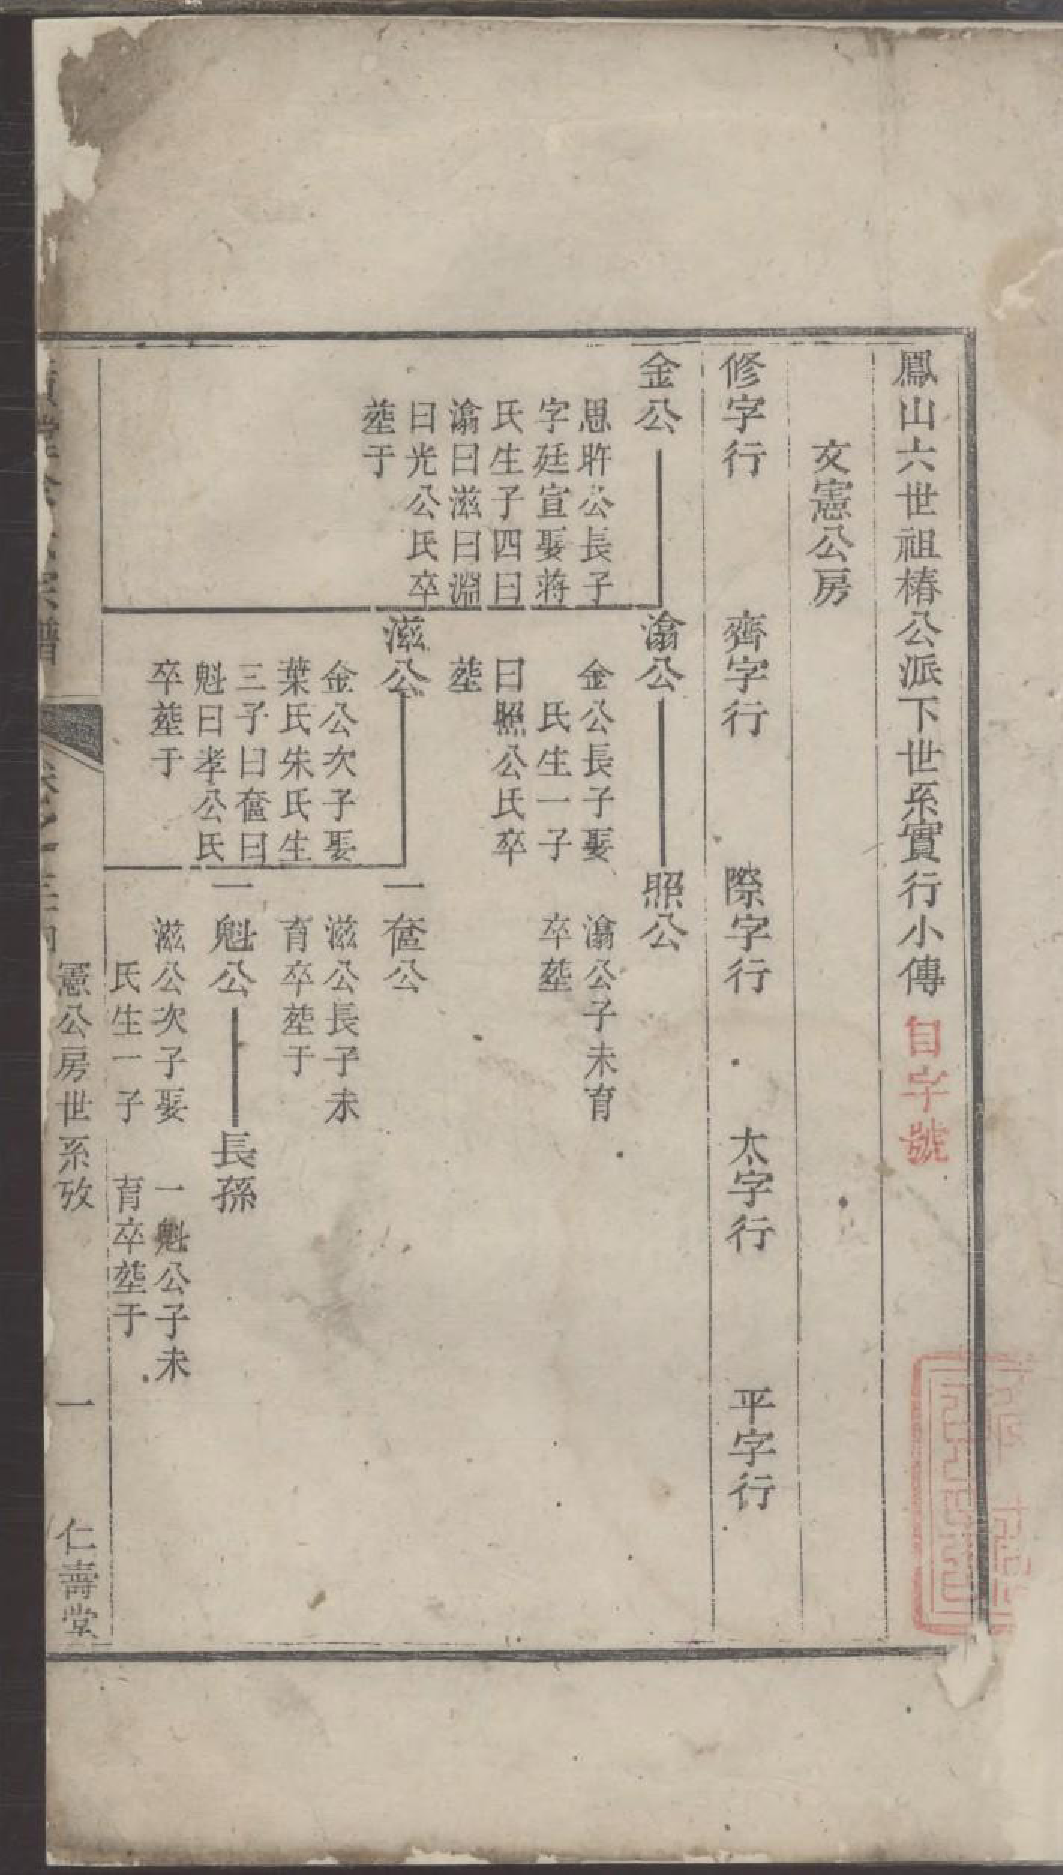 鳳山六世祖椿公派下世系實行小傳 自字號
文憲公房
修字行 齊字行 際字行 太字行 平字行
金公
思昨公長子
字廷宣娶蒋
氏生子四曰
瀹曰滋曰淵
曰光公氏卒
塟于
瀹公
金公長子娶
氏生一子
曰照公氏卒
塟
照公
瀹公子未育
卒塟
滋公
金公次子娶
葉氏朱氏生
三子曰奮曰
魁曰孝公氏
卒塟于
一奮公
滋公長子未
育卒塟于
一魁公
滋公次子娶
氏生一子
長孫
一魁公子未
育卒塟于
憲公房世系攷 一 仁壽堂